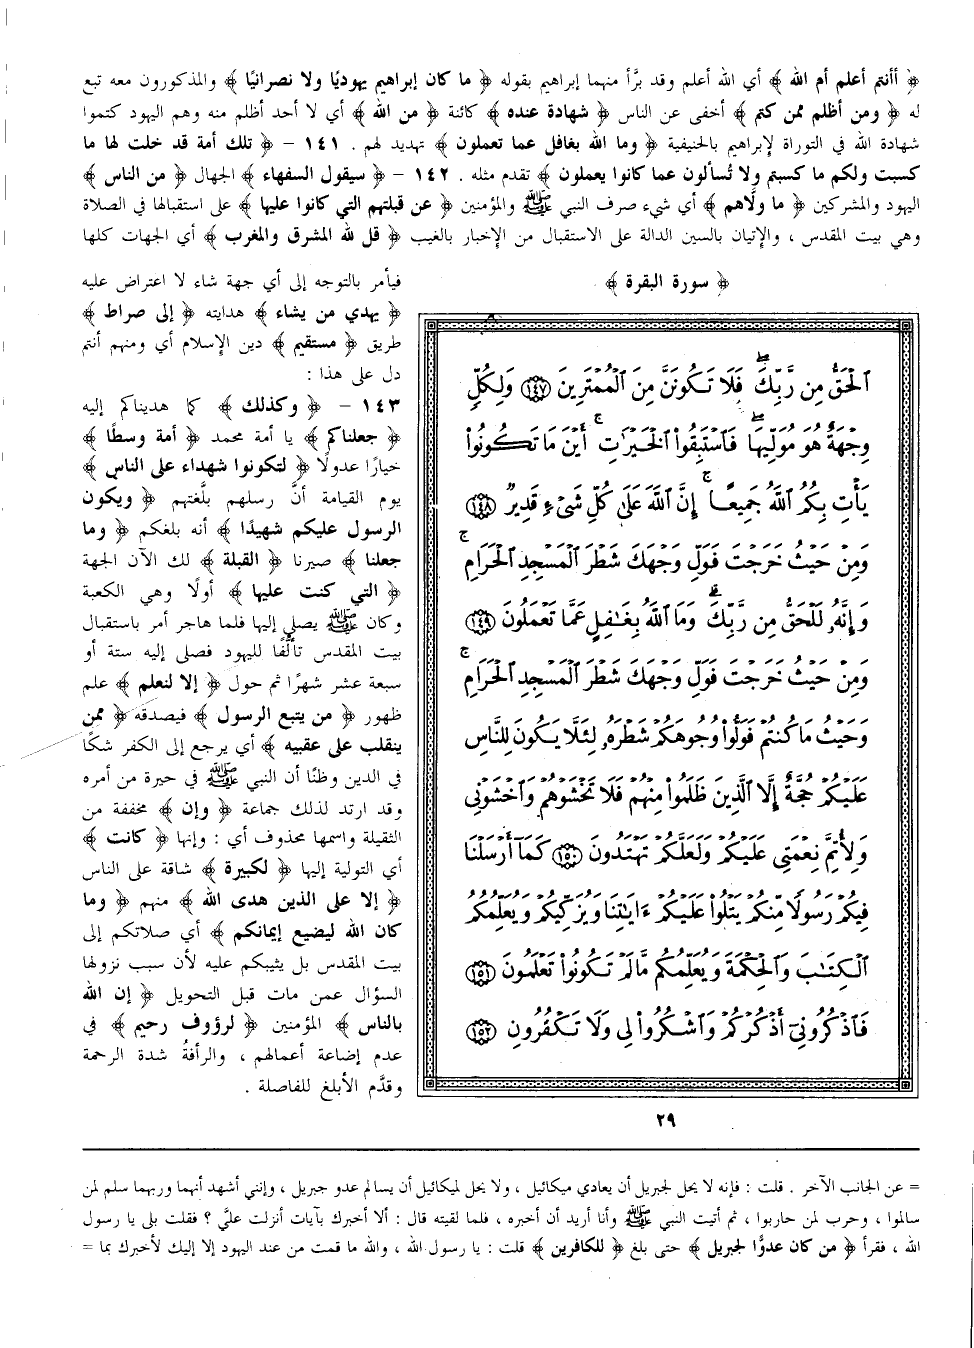 ﴿ أأنتم أعلم أم الله ﴾ أي الله أعلم وقد برَّأ منهما إبراهيم بقوله ﴿ ما كان إبراهيم يهوديًا ولا نصرانيًا ﴾ والمذكورون معه تبع
له ﴿ ومن أظلم ممن كتم ﴾ أخفى عن الناس ﴿ شهادة عنده ﴾ كائنة ﴿ من الله ﴾ أي لا أحد أظلم منه وهم اليهود كتموا
شهادة الله في التوراة لإبراهيم بالحنيفية ﴿ وما الله بغافل عما تعملون ﴾ تهديد لهم . ١٤١ – ﴿ تلك أمة قد خلت لها ما
كسبت ولكم ما كسبتم ولا تُسألون عما كانوا يعملون ﴾ تقدم مثله . ١٤٢ – ﴿ سيقول السفهاء ﴾ الجهال ﴿ من الناس ﴾
اليهود والمشركين ﴿ ما ولَّاهم ﴾ أي شيء صرف النبي ﷺ والمؤمنين ﴿ عن قبلتهم التي كانوا عليها ﴾ على استقبالها في الصلاة
وهي بيت المقدس ، والإتيان بالسين الدالة على الاستقبال من الإخبار بالغيب ﴿ قل لله المشرق والمغرب ﴾ أي الجهات كلها
﴿ سورة البقرة ﴾
ٱلْحَقُّ مِن رَّبِّكَ ۖ فَلَا تَكُونَنَّ مِنَ ٱلْمُمْتَرِينَ ١٤٧ وَلِكُلٍّ
وِجْهَةٌ هُوَ مُوَلِّيهَا ۖ فَٱسْتَبِقُوا۟ ٱلْخَيْرَٰتِ ۚ أَيْنَ مَا تَكُونُوا۟
يَأْتِ بِكُمُ ٱللَّهُ جَمِيعًا ۚ إِنَّ ٱللَّهَ عَلَىٰ كُلِّ شَىْءٍ قَدِيرٌ ١٤٨
وَمِنْ حَيْثُ خَرَجْتَ فَوَلِّ وَجْهَكَ شَطْرَ ٱلْمَسْجِدِ ٱلْحَرَامِ ۚ
وَإِنَّهُۥ لَلْحَقُّ مِن رَّبِّكَ ۗ وَمَا ٱللَّهُ بِغَٰفِلٍ عَمَّا تَعْمَلُونَ ١٤٩
وَمِنْ حَيْثُ خَرَجْتَ فَوَلِّ وَجْهَكَ شَطْرَ ٱلْمَسْجِدِ ٱلْحَرَامِ ۚ
وَحَيْثُ مَا كُنتُمْ فَوَلُّوا۟ وُجُوهَكُمْ شَطْرَهُۥ لِئَلَّا يَكُونَ لِلنَّاسِ
عَلَيْكُمْ حُجَّةٌ إِلَّا ٱلَّذِينَ ظَلَمُوا۟ مِنْهُمْ فَلَا تَخْشَوْهُمْ وَٱخْشَوْنِى
وَلِأُتِمَّ نِعْمَتِى عَلَيْكُمْ وَلَعَلَّكُمْ تَهْتَدُونَ ١٥٠ كَمَآ أَرْسَلْنَا
فِيكُمْ رَسُولًا مِّنكُمْ يَتْلُوا۟ عَلَيْكُمْ ءَايَٰتِنَا وَيُزَكِّيكُمْ وَيُعَلِّمُكُمُ
ٱلْكِتَٰبَ وَٱلْحِكْمَةَ وَيُعَلِّمُكُم مَّا لَمْ تَكُونُوا۟ تَعْلَمُونَ ١٥١
فَٱذْكُرُونِىٓ أَذْكُرْكُمْ وَٱشْكُرُوا۟ لِى وَلَا تَكْفُرُونِ ١٥٢
فيأمر بالتوجه إلى أي جهة شاء لا اعتراض عليه
﴿ يهدي من يشاء ﴾ هدايته ﴿ إلى صراط ﴾
طريق ﴿ مستقيم ﴾ دين الإسلام أي ومنهم أنتم
دل على هذا :
١٤٣ – ﴿ وكذلك ﴾ كما هديناكم إليه
﴿ جعلناكم ﴾ يا أمة محمد ﴿ أمة وسطًا ﴾
خيارًا عدولًا ﴿ لتكونوا شهداء على الناس ﴾
يوم القيامة أنَّ رسلهم بلَّغتهم ﴿ ويكون
الرسول عليكم شهيدًا ﴾ أنه بلغكم ﴿ وما
جعلنا ﴾ صيرنا ﴿ القبلة ﴾ لك الآن الجهة
﴿ التي كنت عليها ﴾ أولًا وهي الكعبة
وكان ﷺ يصلي إليها فلما هاجر أمر باستقبال
بيت المقدس تألُّفًا لليهود فصلى إليه ستة أو
سبعة عشر شهرًا ثم حول ﴿ إلا لنعلم ﴾ علم
ظهور ﴿ من يتبع الرسول ﴾ فيصدقه ﴿ ممن
ينقلب على عقبيه ﴾ أي يرجع إلى الكفر شكًا
في الدين وظنًا أن النبي ﷺ في حيرة من أمره
وقد ارتد لذلك جماعة ﴿ وإن ﴾ مخففة من
الثقيلة واسمها محذوف أي : وإنها ﴿ كانت ﴾
أي التولية إليها ﴿ لكبيرة ﴾ شاقة على الناس
﴿ إلا على الذين هدى الله ﴾ منهم ﴿ وما
كان الله ليضيع إيمانكم ﴾ أي صلاتكم إلى
بيت المقدس بل يثيبكم عليه لأن سبب نزولها
السؤال عمن مات قبل التحويل ﴿ إن الله
بالناس ﴾ المؤمنين ﴿ لرؤوف رحيم ﴾ في
عدم إضاعة أعمالهم ، والرأفةُ شدة الرحمة
وقدَّم الأبلغ للفاصلة .
٢٩
= عن الجانب الآخر . قلت : فإنه لا يحل لجبريل أن يعادي ميكائيل ، ولا يحل لميكائيل أن يسالم عدو جبريل ، وإنني أشهد أنهما وربهما سلم لمن
سالموا ، وحرب لمن حاربوا ، ثم أتيت النبي ﷺ وأنا أريد أن أخبره ، فلما لقيته قال : ألا أخبرك بآيات أنزلت عليَّ ؟ فقلت بلى يا رسول
الله ، فقرأ ﴿ من كان عدوًّا لجبريل ﴾ حتى بلغ ﴿ للكافرين ﴾ قلت : يا رسول الله ، والله ما قمت من عند اليهود إلا إليك لأخبرك بما =